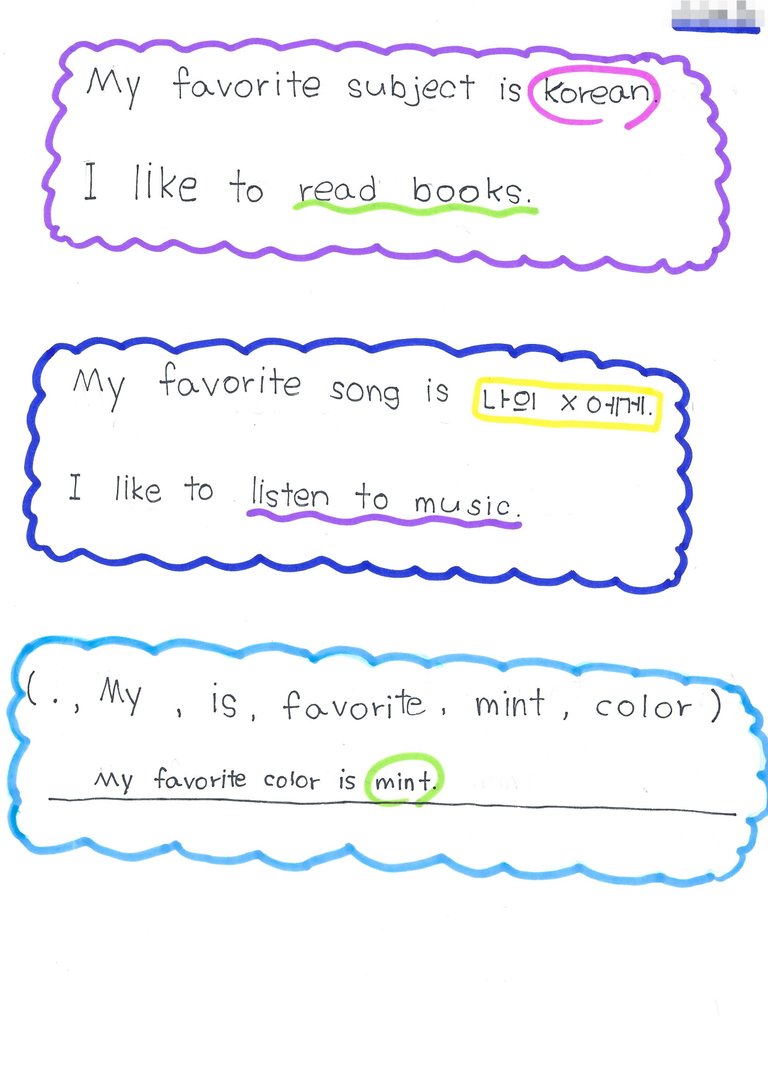 My favorite subject is korean.
I like to read books.
My favorite song is 나의 X 에게.
I like to listen to music.
(., My, is, favorite, mint, color)
My favorite color is mint.